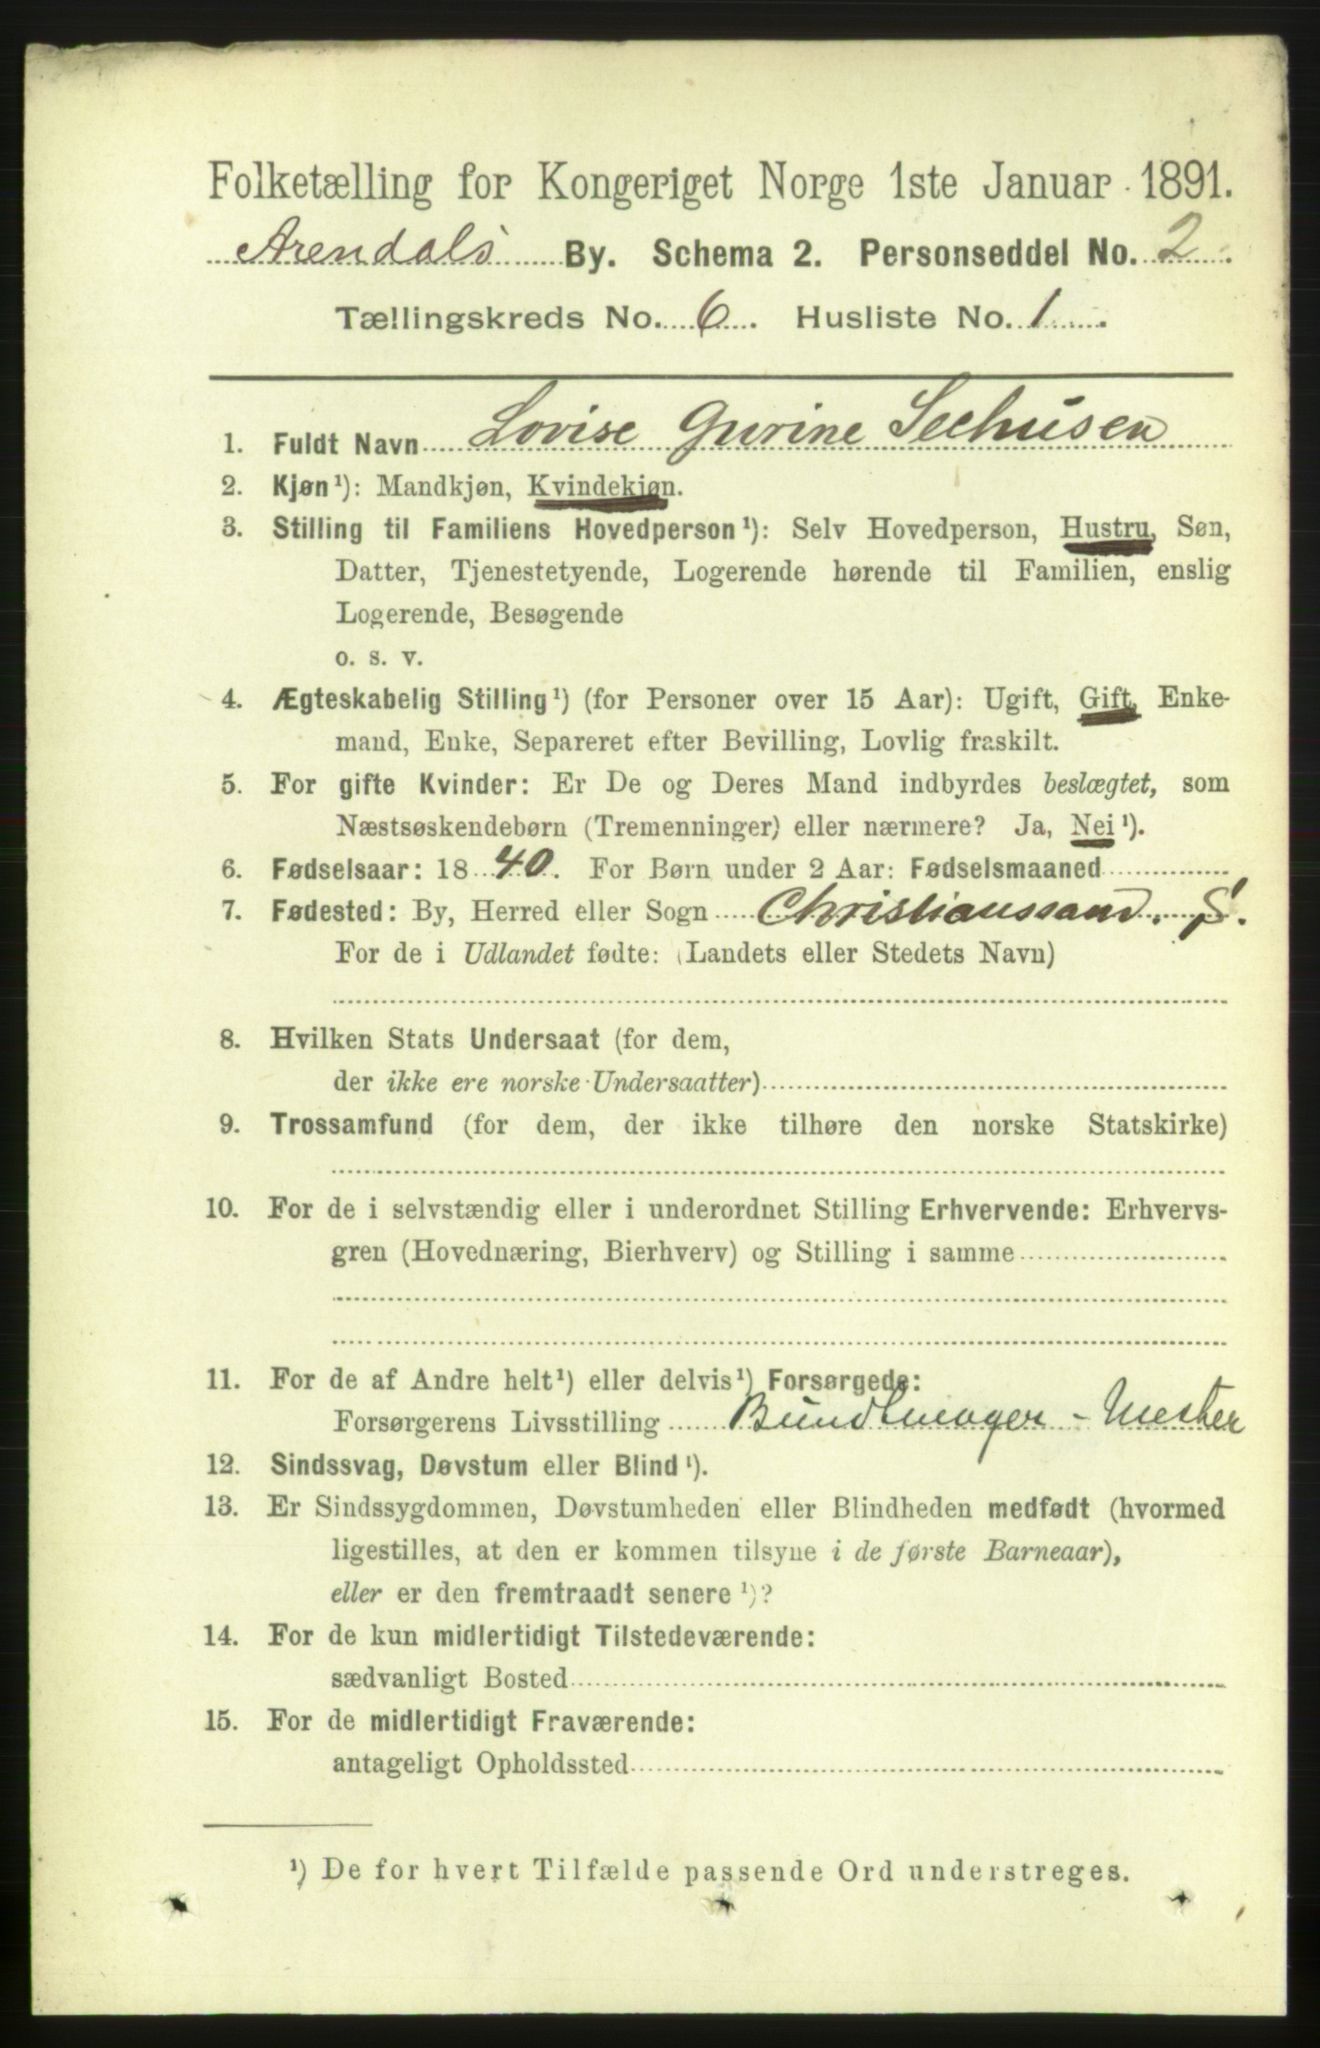 Folketælling for Kongeriget Norge 1ste Januar 1891.
Arendals By. Schema 2. Personseddel No. 2.
Tællingskreds No. 6. Husliste No. 1.
1. Fuldt Navn Lovise Gurine Seehusen
2. Kjøn¹): Mandkjøn, Kvindekjøn.
3. Stilling til Familiens Hovedperson¹): Selv Hovedperson, Hustru, Søn,
Datter, Tjenestetyende, Logerende hørende til Familien, enslig
Logerende, Besøgende
o. s. v.
4. Ægteskabelig Stilling¹) (for Personer over 15 Aar): Ugift, Gift, Enke-
mand, Enke, Separeret efter Bevilling, Lovlig fraskilt.
5. For gifte Kvinder: Er De og Deres Mand indbyrdes beslægtet, som
Næstsøskendebørn (Tremenninger) eller nærmere? Ja, Nei¹).
6. Fødselsaar: 1840. For Børn under 2 Aar: Fødselsmaaned
7. Fødested: By, Herred eller Sogn Christianssand. S.
For de i Udlandet fødte: (Landets eller Stedets Navn)
8. Hvilken Stats Undersaat (for dem,
der ikke ere norske Undersaatter)
9. Trossamfund (for dem, der ikke tilhøre den norske Statskirke)
10. For de i selvstændig eller i underordnet Stilling Erhvervende: Erhvervs-
gren (Hovednæring, Bierhverv) og Stilling i samme
11. For de af Andre helt¹) eller delvis¹) Forsørgede:
Forsørgerens Livsstilling Bundtmager - Mester
12. Sindssvag, Døvstum eller Blind¹).
13. Er Sindssygdommen, Døvstumheden eller Blindheden medfødt (hvormed
ligestilles, at den er kommen tilsyne i de første Barneaar),
eller er den fremtraadt senere¹)?
14. For de kun midlertidigt Tilstedeværende:
sædvanligt Bosted
15. For de midlertidigt Fraværende:
antageligt Opholdssted
¹) De for hvert Tilfælde passende Ord understreges.